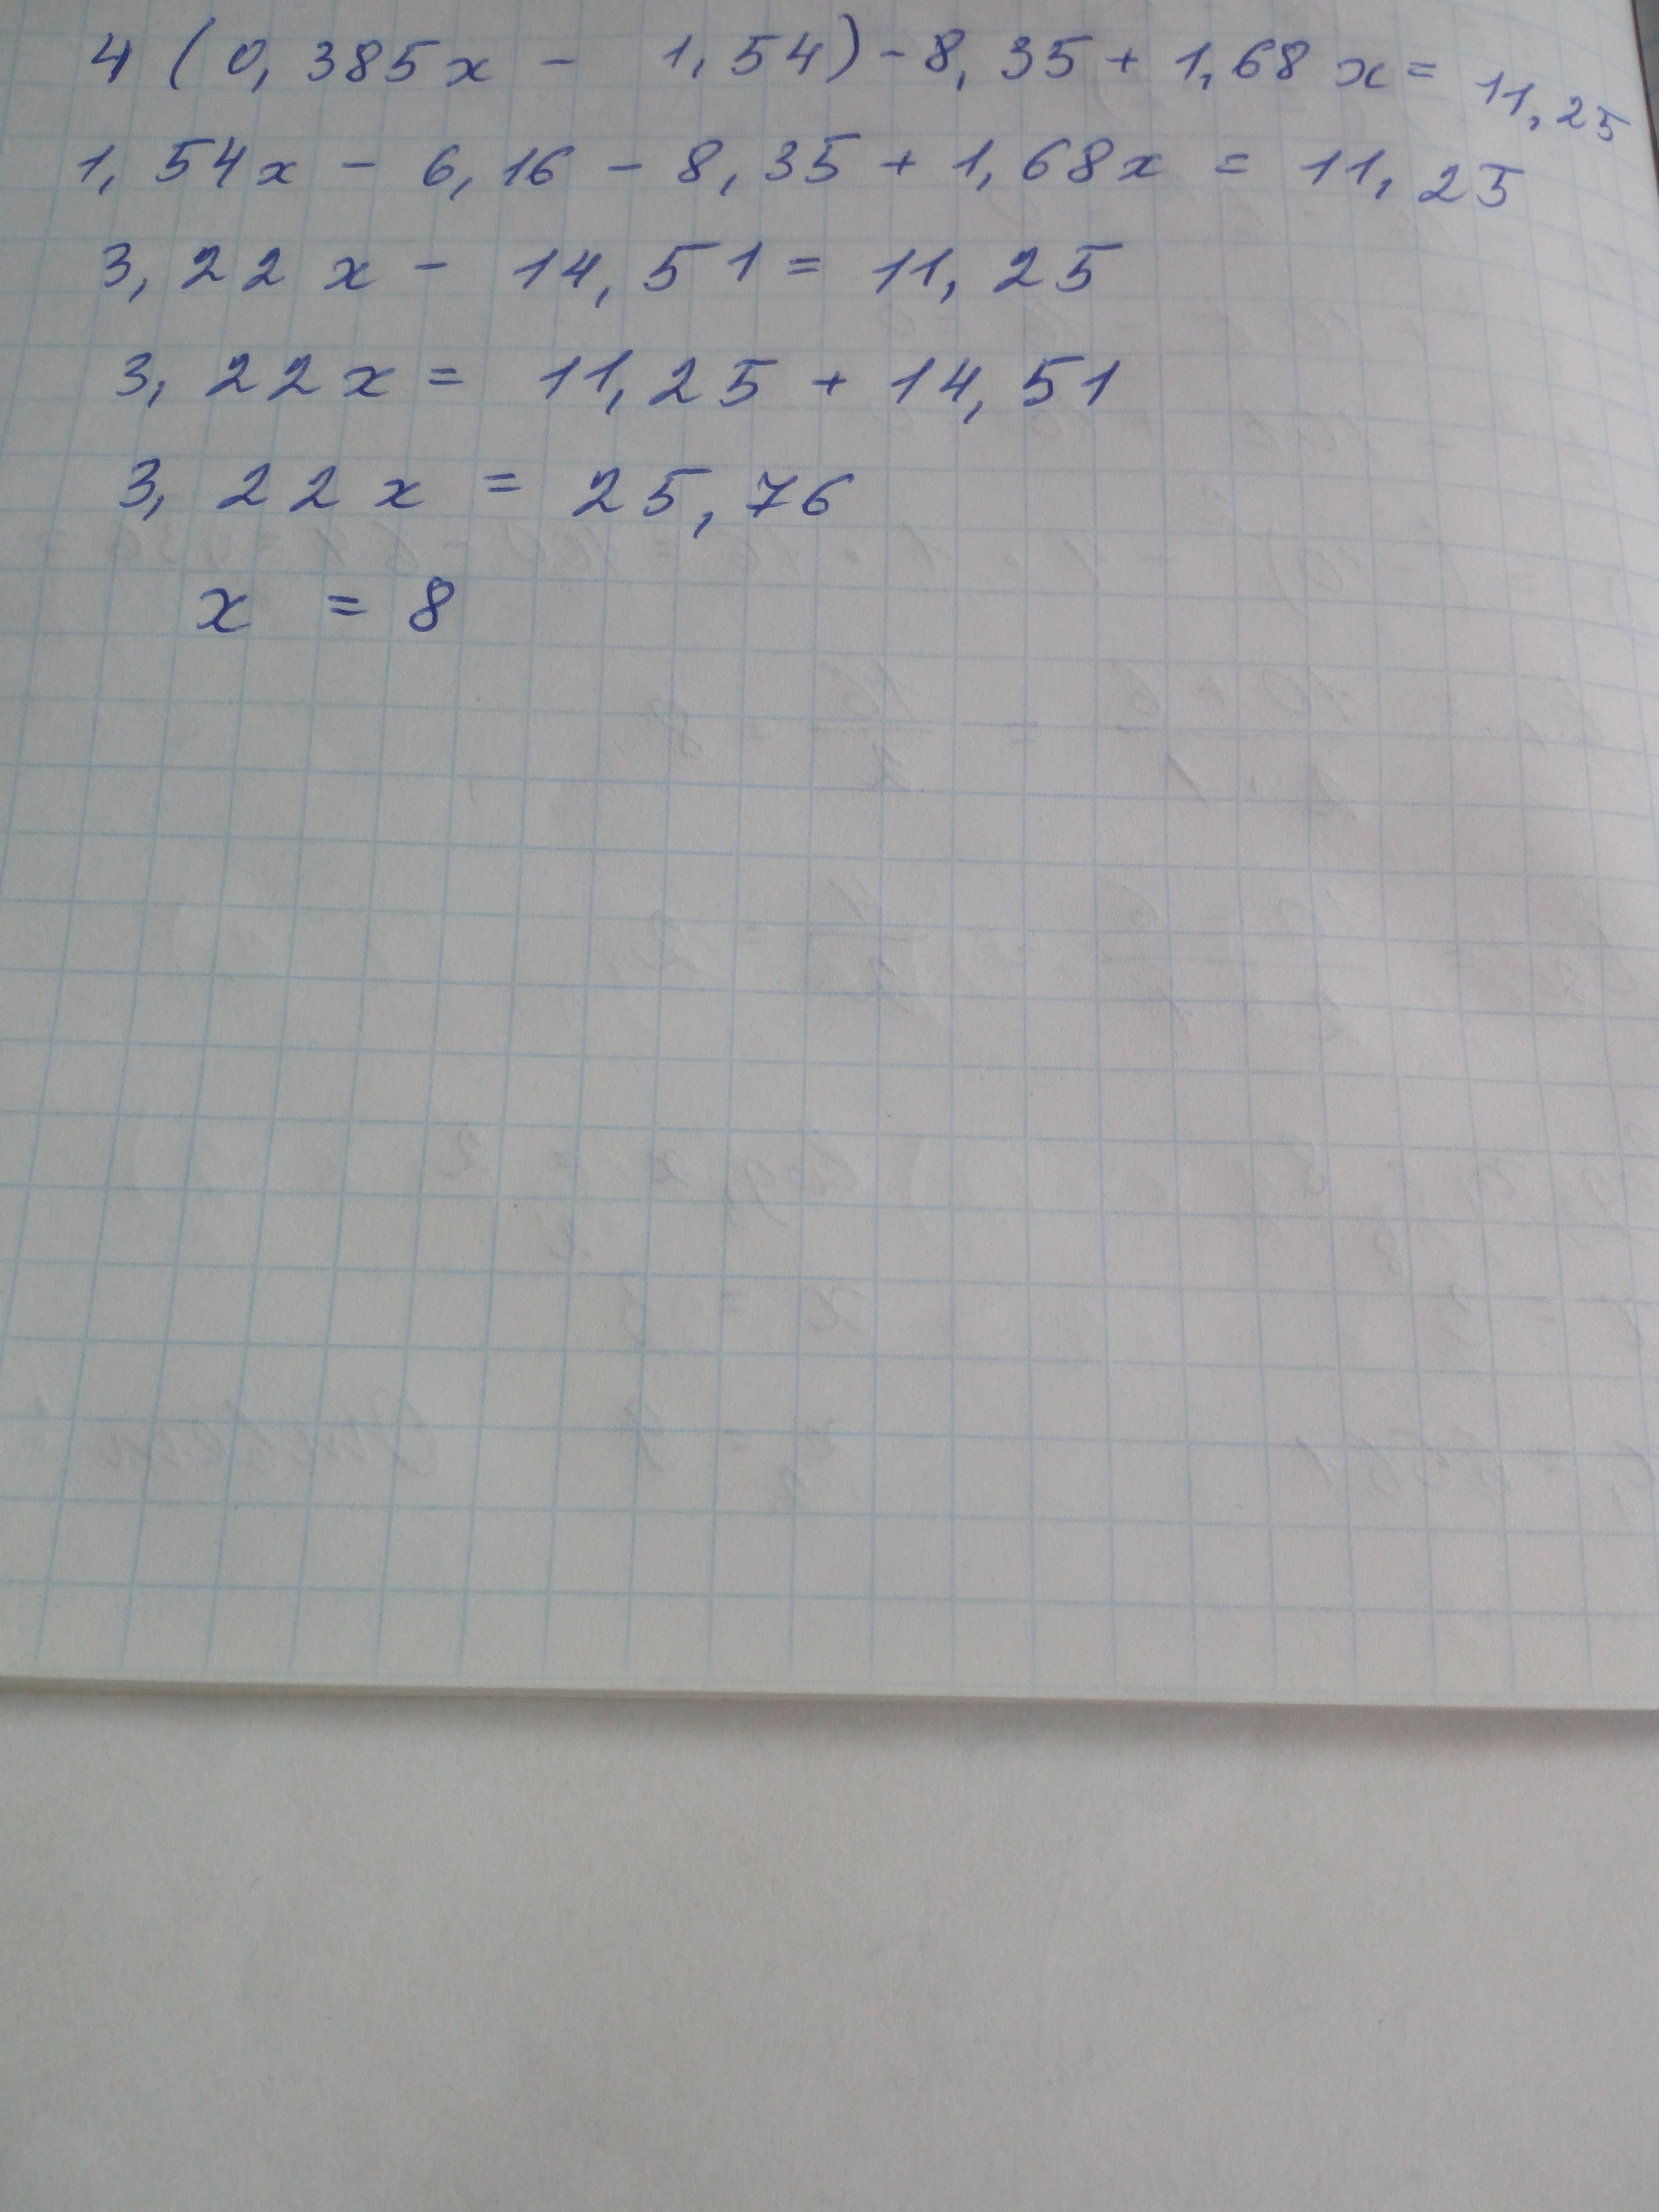 4 (0,385x - 1,54) - 8,35 + 1,68x = 11,25
1,54x - 6,16 - 8,35 + 1,68x = 11,25
3,22x - 14,51 = 11,25
3,22x = 11,25 + 14,51
3,22x = 25,76
x = 8